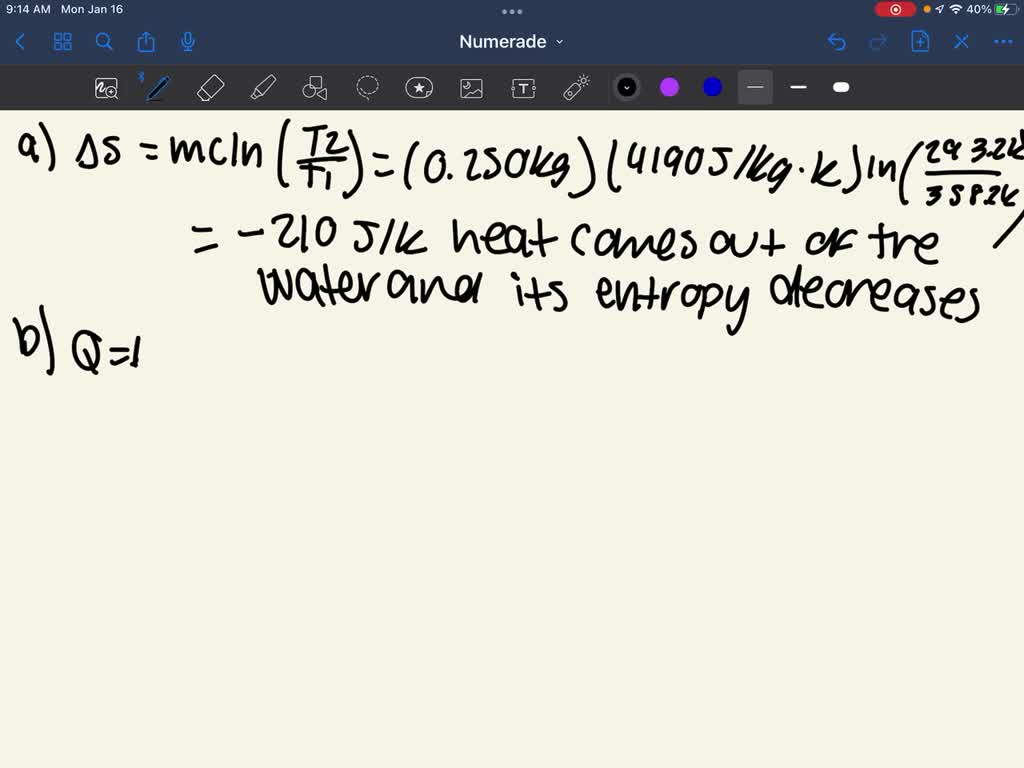 9:14 AM Mon Jan 16
40%
Numerade
a) ΔS = mcln(T2/T1) = (0.250kg)(4190J/kg·K)ln(293.2K/358.2K)
= -210 J/K heat comes out of the
water and its entropy decreases
b) Q=1